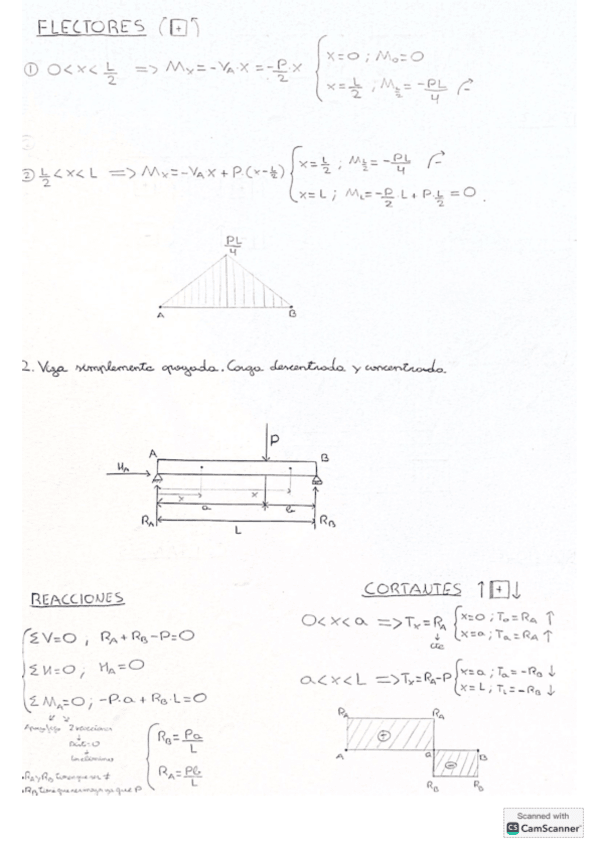 FLECTORES (+)
① 0<x<L/2 => Mx=-VA·x=-P/2·x { x=0; M0=0
x=L/2; ML/2=-PL/4
② L/2<x<L => Mx=-VAx+P·(x-L/2) { x=L/2; ML/2=-PL/4
x=L; ML=-P/2·L+P·L/2=0.
PL/4
A B
2. Viga simplemente apoyada. Carga descentrada y concentrada.
P
A B
HA
x x
a b
RA RB
L
REACCIONES
ΣV=0, RA+RB-P=0
ΣH=0; HA=0
ΣMA=0; -P·a+RB·L=0
RB=Pa/L
RA=Pb/L
CORTANTES ↑+↓
0<x<a => Tx=RA { x=0; To=RA ↑
x=a; Ta=RA ↑
cte
a<x<L => Tx=RA-P { x=a; Ta=-RB ↓
x=L; TL=-RB ↓
RA RA
+
A a B
-
RB RB
Scanned with
CS CamScanner